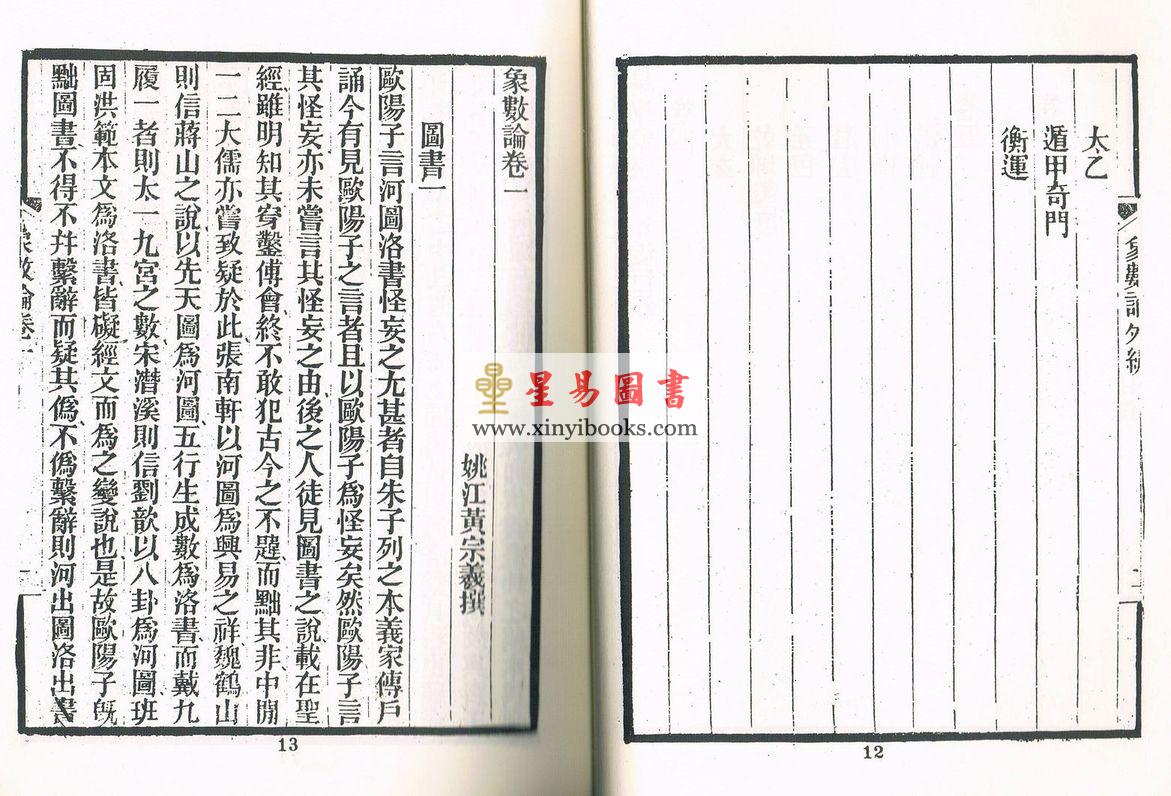 太乙
遁甲奇門
衡運
象數論外編
二
12
象數論卷一
姚江黃宗羲撰
圖書一
歐陽子言河圖洛書怪妄之尤甚者自朱子列之本義家傳戶
誦今有見歐陽子之言者且以歐陽子爲怪妄矣然歐陽子言
其怪妄亦未嘗言其怪妄之由後之人徒見圖書之說載在聖
經雖明知其穿鑿傅會終不敢犯古今之不韙而黜其非中閒
一二大儒亦嘗致疑於此張南軒以河圖爲興易之祥魏鶴山
則信蔣山之說以先天圖爲河圖五行生成數爲洛書而戴九
履一者則太一九宮之數宋潛溪則信劉歆以八卦爲河圖班
固洪範本文爲洛書皆礙經文而爲之變說也是故歐陽子旣
黜圖書不得不幷繫辭而疑其僞不僞繫辭則河出圖洛出書
象數論卷一
13
星易圖書
www.xinyibooks.com